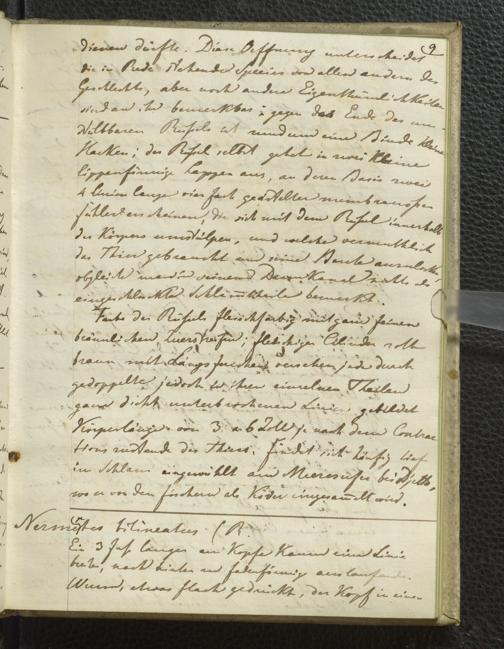 9
dienen dürfte. Diese Oeffnung unterscheidet
die in Rede stehende Species von allen andern des
Geschlechts, aber noch andere Eigenthümlichkeiten
sind an ihr bemerkbar; gegen das Ende des
stülpbaren Rüßels ist rundum eine Binde kleine
Hacken; der Rüßel selbst gehet in zwei kleine
lippenförmige Lappen aus, an deren Basis zwei
4 Linien lange vier fach membranöse
Fühler erscheinen, die sich mit dem Rüßel innerhalb
des Körpers umstülpen, und welche vermuthlich
das Thier gebraucht um seine Beute
obgleich man in seinem Darm Kanal nichts als
eingeschluckte Schlammtheile bemerkt.
Farbe des Rüßels fleischfarbig mit ganz feinen
bräunlichen Querstreifen; fleischiger Cilinder roth
braun mit Längsfurchen versehen, jede durch
gedoppelte jedoch in ihren einzelnen Theilen
ganz dicht unterbrochenen Linien gebildet
Körperlänge von 3 a 6 Zoll je nach dem Contrac
tions zustand des Thiers. findet sich häufig tief
im Schlam eingewühlt am Meeresufer bei
wo er von den fischern als Köder eingesamelt wird.
Nemertes bilineatus (R.
Ein 3 fuß langer am Kopfe kaum eine Linie
breiter, nach hinten zu fadenförmig auslaufender
Wurm, etwas flach gedrückt, der Kopf in einen